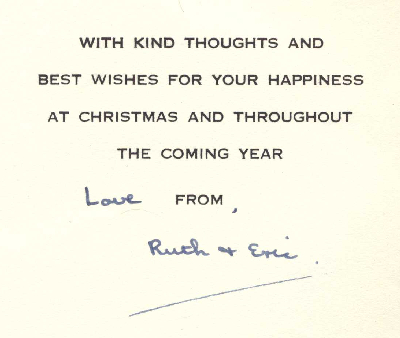 WITH KIND THOUGHTS AND
BEST WISHES FOR YOUR HAPPINESS
AT CHRISTMAS AND THROUGHOUT
THE COMING YEAR
Love FROM,
Ruth & Eric.